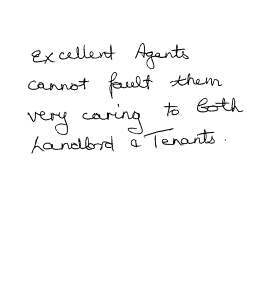 Excellent Agents
cannot fault them
very caring to both
Landlord & Tenants.